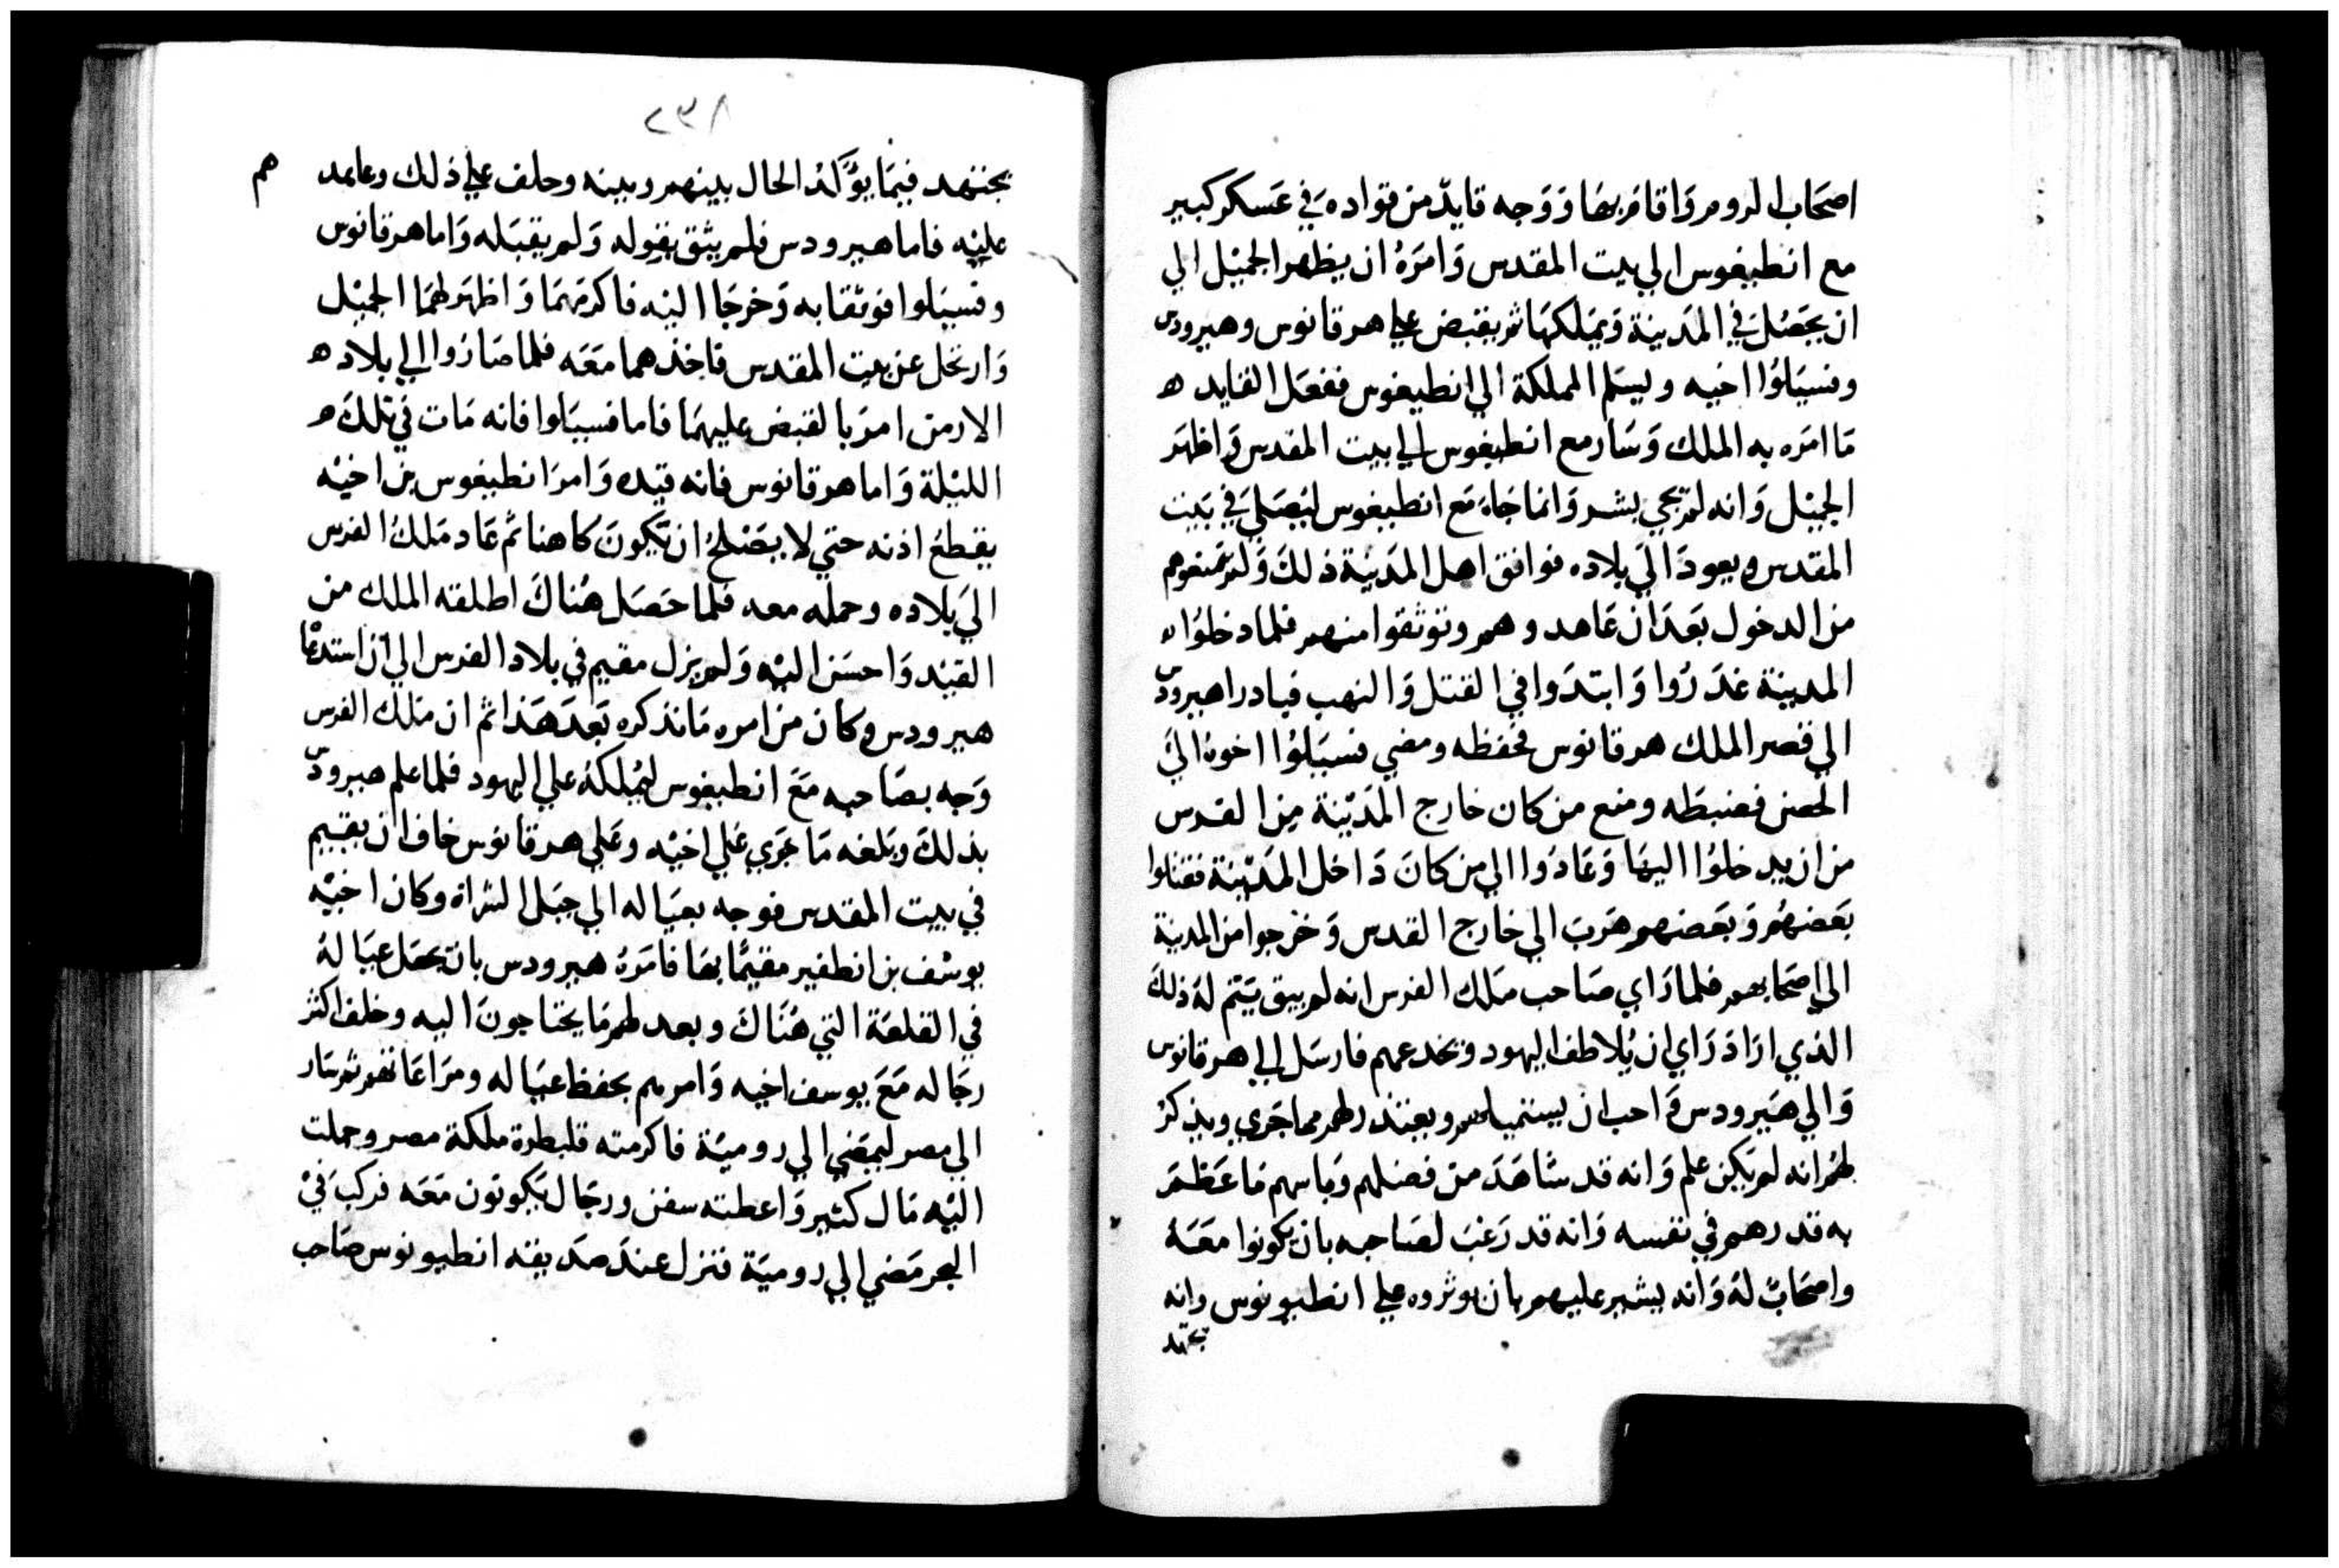 اصحاب الروم واقام بها ووجه قايد من قواده في عسكر كبير
مع انطيغوس الي بيت المقدس وامره ان يظهر الجميل الي
ان يحصل في المدينة ويملكها ثم يقبض علي هرقانوس وهيرودس
وفسيلوا اخيه ويسلم المملكة الي انطيغوس ففعل القايد ه
ما امره به الملك وسار مع انطيغوس الي بيت المقدس واظهر
الجميل وانه لم يجي بشر وانما جاء مع انطيغوس ليصلي في بيت
المقدس ويعود الي بلاده فوافق اهل المدينة ذلك ولم يمنعوهم
من الدخول بعد ان عاهدوهم وتوثقوا منهم فلما دخلوا
المدينة غدروا وابتدوا في القتل والنهب فبادرا هيرودس
الي قصر الملك هرقانوس فحفظه ومضي فسيلوا اخوه الي
الحصن فضبطه ومنع من كان خارج المدينة من القدس
من ان يدخلوا اليها وعادوا الي من كان داخل المدينة فقتلوا
بعضهم وبعضهم هرب الي خارج القدس وخرجوا من المدينة
الي اصحابهم فلما راي صاحب ملك الفرس انه لم يبق يتم له ذلك
الذي اراد راي ان يلاطف اليهود ويخدعهم فارسل الي هرقانوس
والي هيرودس واحب ان يستميلهم ويعتذر لهم مما جري ويذكر
لهم انه لم يكن علم وانه قد شاهد من فضلهم وباسهم ما عظم
به قدرهم في نفسه وانه قد رغب لصاحبه بان يكونوا معه
واصحاب له وانه يشير عليهم بان يوثروه علي انطيونوس وانه
يجتهد
٢٣٨
يجتهد فيما يوكد الحال بينهم وبينه وحلف علي ذلك وعاهد هم
عليه فاما هيرودس فلم يثق بقوله ولم يقبله واما هرقانوس
وفسيلوا فوثقا به وخرجا اليه فاكرمهما واظهر لهما الجميل
وارتحل عن بيت المقدس فاخذهما معه فلما صاروا الي بلاد ه
الارمن امر بالقبض عليهما فاما فسيلوا فانه مات في تلك ه
الليلة واما هرقانوس فانه قيده وامر انطيغوس بن اخيه
بقطع اذنه حتي لا يصلح ان يكون كاهنا ثم عاد ملك الفرس
الي بلاده وحمله معه فلما حصل هناك اطلقه الملك من
القيد واحسن اليه ولم يزل مقيم في بلاد الفرس الي ان استدعا
هيرودس وكان من امره ما نذكره بعد هذا ثم ان ملك الفرس
وجه بصاحبه مع انطيغوس ليملكه علي اليهود فلما علم هيرودس
بذلك وبلغه ما جري علي اخيه وعلي هرقانوس خاف ان يقيم
في بيت المقدس فوجه بعياله الي جبل الشراة وكان اخيه
يوسف بن انطفير مقيما بها فامره هيرودس بان يجعل عياله
في القلعة التي هناك ويعد لهم ما يحتاجون اليه وخلف اكثر
رجاله مع يوسف اخيه وامرهم بحفظ عياله ومراعاتهم ثم سار
الي مصر ليمضي الي رومية فاكرمته قلبطرة ملكة مصر وحملت
اليه مال كثير واعطته سفن ورجال يكونون معه فركب في
البحر مضي الي رومية فنزل عند صديقه انطيونوس صاحب